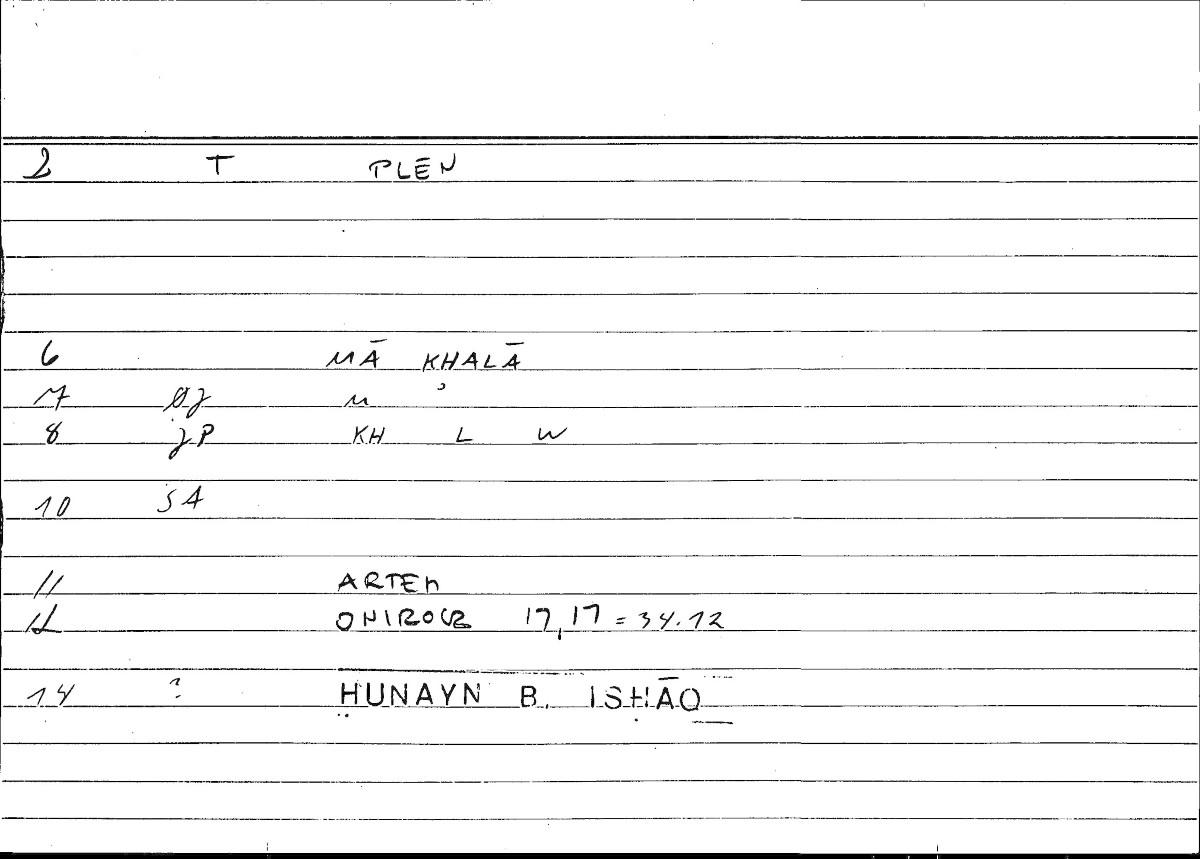 2 T PLĒN
6 MĀ KHALĀ
7 M
8 KH L W
10 SA
11 ARTEM
12 ONIROCR 17,17 = 34.12
14 ? ḤUNAYN B. ISḤĀQ